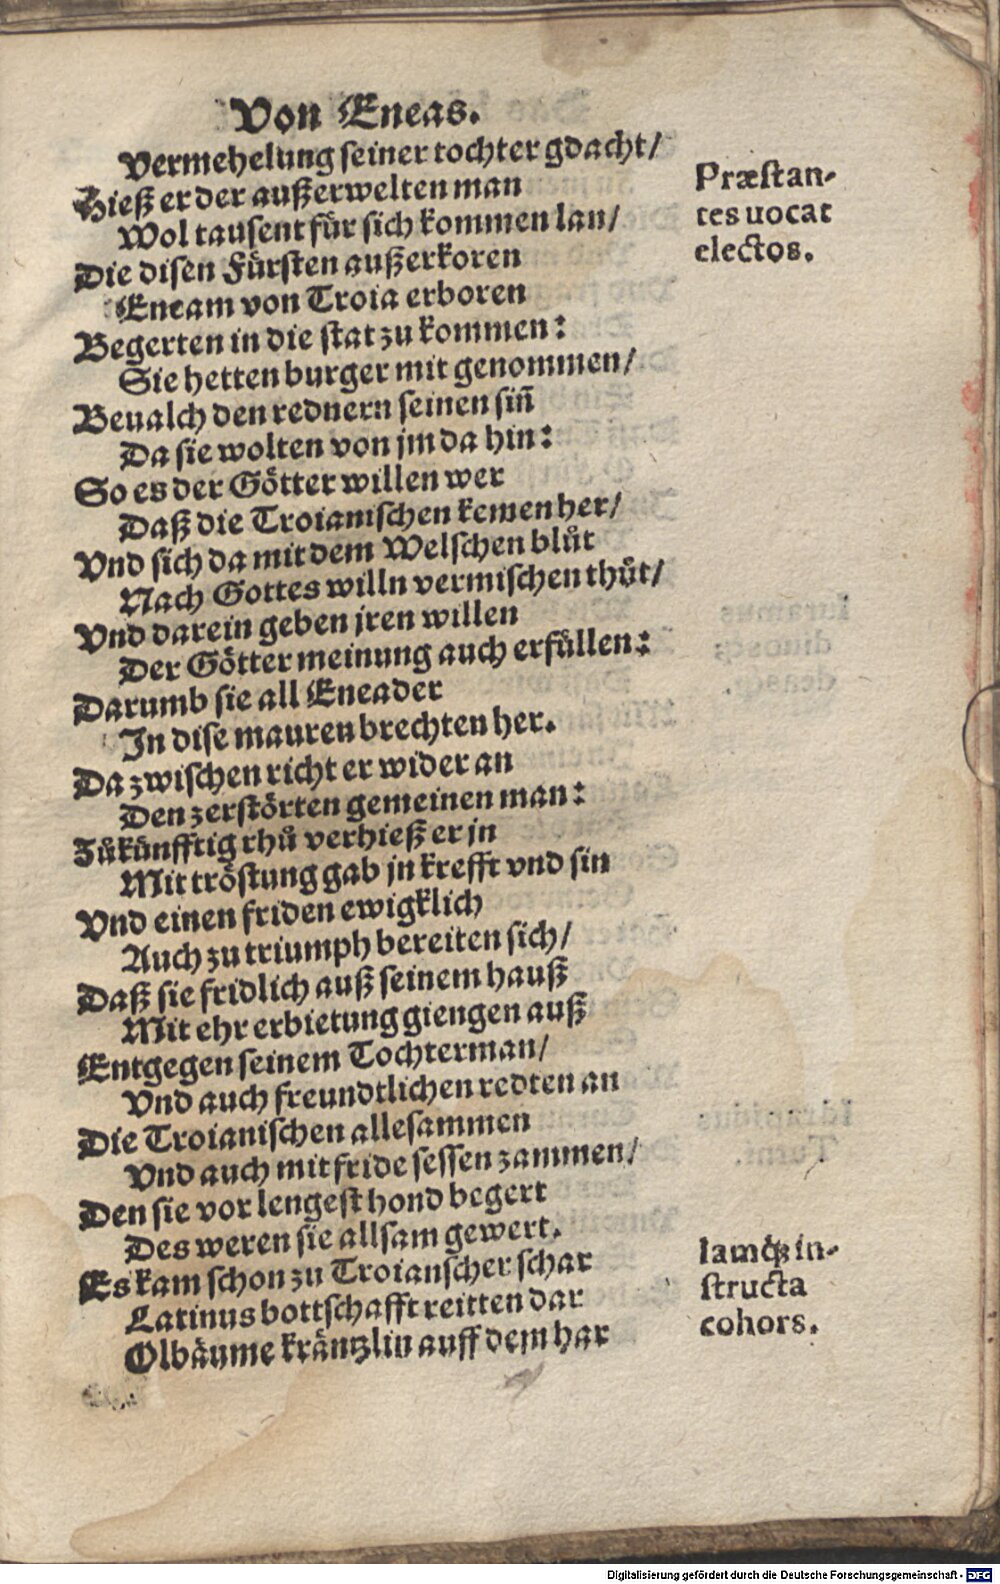 Von Eneas.
Vermehelung seiner tochter gdacht/
Hieß er der außerwelten man
Wol tausent für sich kommen lan/
Die disen Fürsten außerkoren
Eneam von Troia erboren
Begerten in die stat zu kommen:
Sie hetten burger mit genommen/
Beualch den rednern seinen sin̄
Da sie wolten von jm da hin:
So es der Götter willen wer
Daß die Troianischen kemen her/
Vnd sich da mit dem Welschen blůt
Nach Gottes willn vermischen thůt/
Vnd darein geben jren willen
Der Götter meinung auch erfüllen:
Darumb sie all Eneader
In dise mauren brechten her.
Da zwischen richt er wider an
Den zerstörten gemeinen man:
Zůkünfftig rhů verhieß er jn
Mit tröstung gab jn krefft vnd sin
Vnd einen friden ewigklich
Auch zu triumph bereiten sich/
Daß sie fridlich auß seinem hauß
Mit ehr erbietung giengen auß
Entgegen seinem Tochterman/
Vnd auch freundtlichen redten an
Die Troianischen allesammen
Vnd auch mit fride sessen zammen/
Den sie vor lengest hond begert
Des weren sie allsam gewert.
Es kam schon zu Troianscher schar
Latinus bottschafft reitten dar
Olbäume kräntzlin auff dem har
Præstan-
tes uocat
electos.
Iamq́ꝫ in-
structa
cohors.
Digitalisierung gefördert durch die Deutsche Forschungsgemeinschaft - DFG